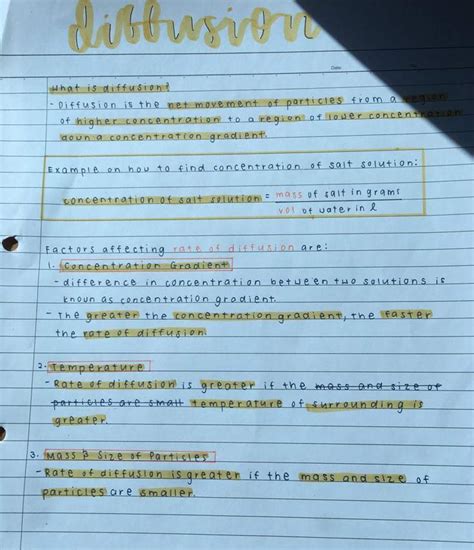 diffusion
Date:
What is diffusion?
- Diffusion is the net movement of particles from a region
of higher concentration to a region of lower concentration
down a concentration gradient.
Example on how to find concentration of salt solution:
concentration of salt solution = mass of salt in grams
vol of water in l
Factors affecting rate of diffusion are:
1. Concentration Gradient
- difference in concentration between two solutions is
known as concentration gradient.
- The greater the concentration gradient, the faster
the rate of diffusion.
2. Temperature
- Rate of diffusion is greater if the mass and size of
particles are small temperature of surrounding is
greater.
3. Mass & Size of Particles
- Rate of diffusion is greater if the mass and size of
particles are smaller.